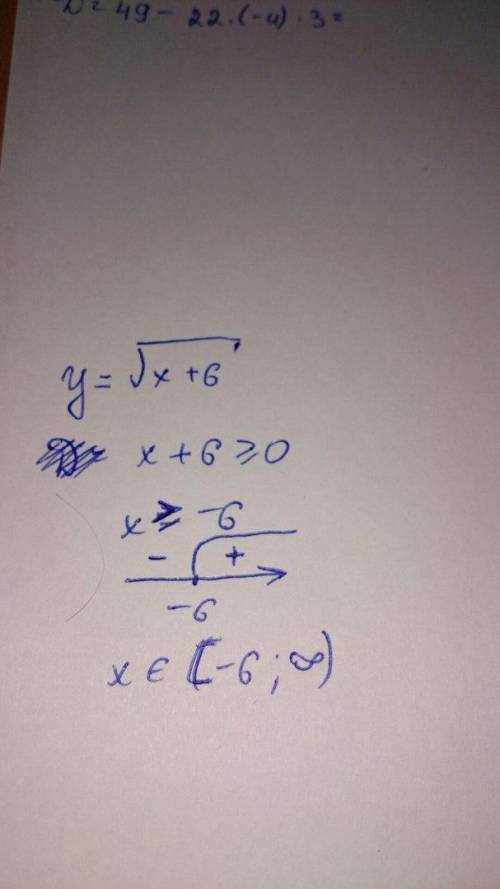 D = 49 - 22 · (-4) · 3 =
y = √x + 6
x + 6 ≥ 0
x ≥ -6
- +
-6
x ∈ [-6 ; ∞)